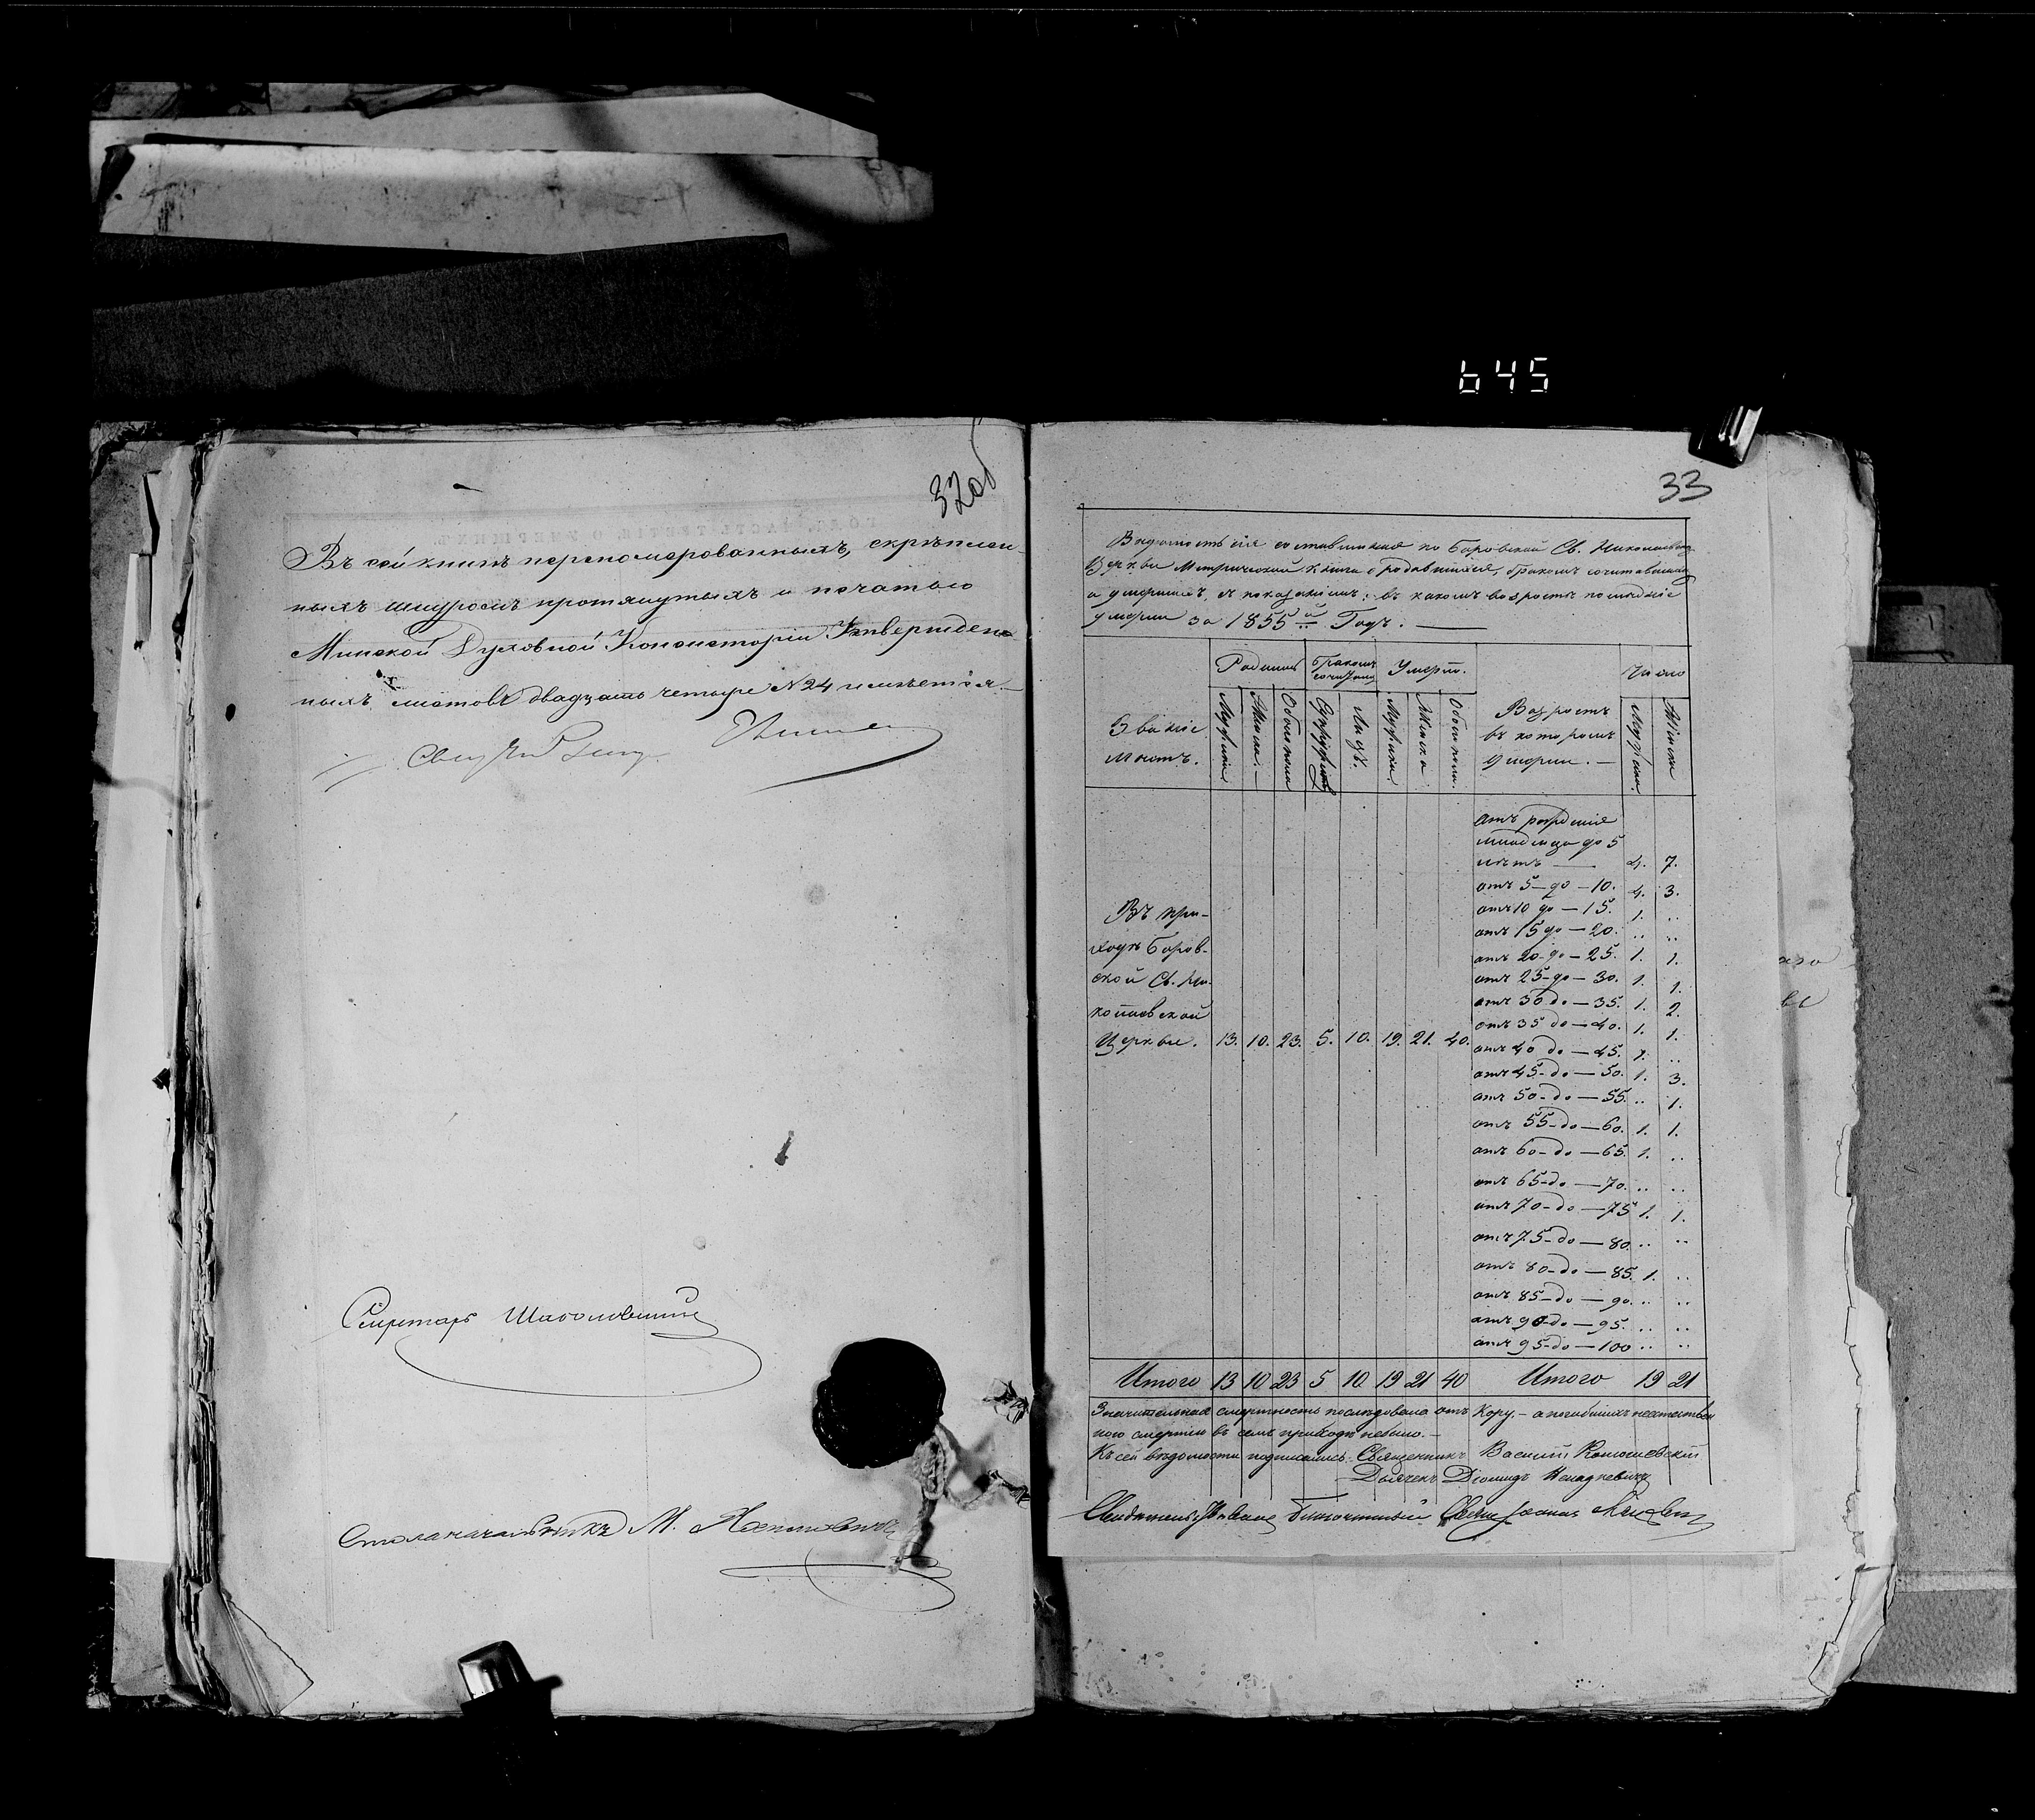 645
32 об
Въ сей книгѣ перенумерованныхъ, скрѣплен-
ныхъ шнуромъ протянутыхъ и печатью
Минской Духовной Консисторіи Утвержден-
ныхъ листовъ двадцать четыре №24 имѣется.
Секретарь
Столоначальникъ М.
33
Вѣдомость сія составлена по Боровской Св. Николаевской
Церкви Метрической книги о родившихся, бракомъ сочетавшихся
и умершихъ, съ показаніемъ: въ какомъ возрастѣ послѣдніе
умерли за 1855й Годъ.
Званіе мѣстъ.
Родилось
Бракомъ сочетано
Умерло.
Возрастъ въ которомъ умерли.
Число
Мужеска
Женска.
Обоего пола
Супружествъ
Лицъ.
Мужеска
Женска
Обоего пола.
Мужска
Женска
отъ рожденія
младенца до 5
лѣтъ — 4. 7.
отъ 5 до — 10. 4. 3.
отъ 10 до — 15. 1. ..
отъ 15 до — 20. .. ..
отъ 20 до — 25. 1. 1.
отъ 25 до — 30. 1. 1.
отъ 30 до — 35. 1. 2.
отъ 35 до — 40. 1. 1.
отъ 40 до — 45. 1. ..
отъ 45 до — 50. 1. 3.
отъ 50 до — 55. .. 1.
отъ 55 до — 60. 1. 1.
отъ 60 до — 65. 1. ..
отъ 65 до — 70. .. ..
отъ 70 до — 75 1. 1.
отъ 75 до — 80. .. ..
отъ 80 до — 85. 1. ..
отъ 85 до — 90. .. ..
отъ 90 до — 95. .. ..
отъ 95 до — 100 .. ..
Въ при-
ходѣ Боров-
ской Св. Ни-
колаевской
Церкви. 13. 10. 23. 5. 10. 19. 21. 40.
Итого 13 10 23 5 10 19 21 40 Итого 19 21
Значительная смертность послѣдовала отъ Кору, — а погибшихъ неестествен
ною смертію въ семъ приходѣ небыло. —
Къ сей вѣдомости подписались: Священникъ Василій
Дьячекъ Діомидъ
Благочинный